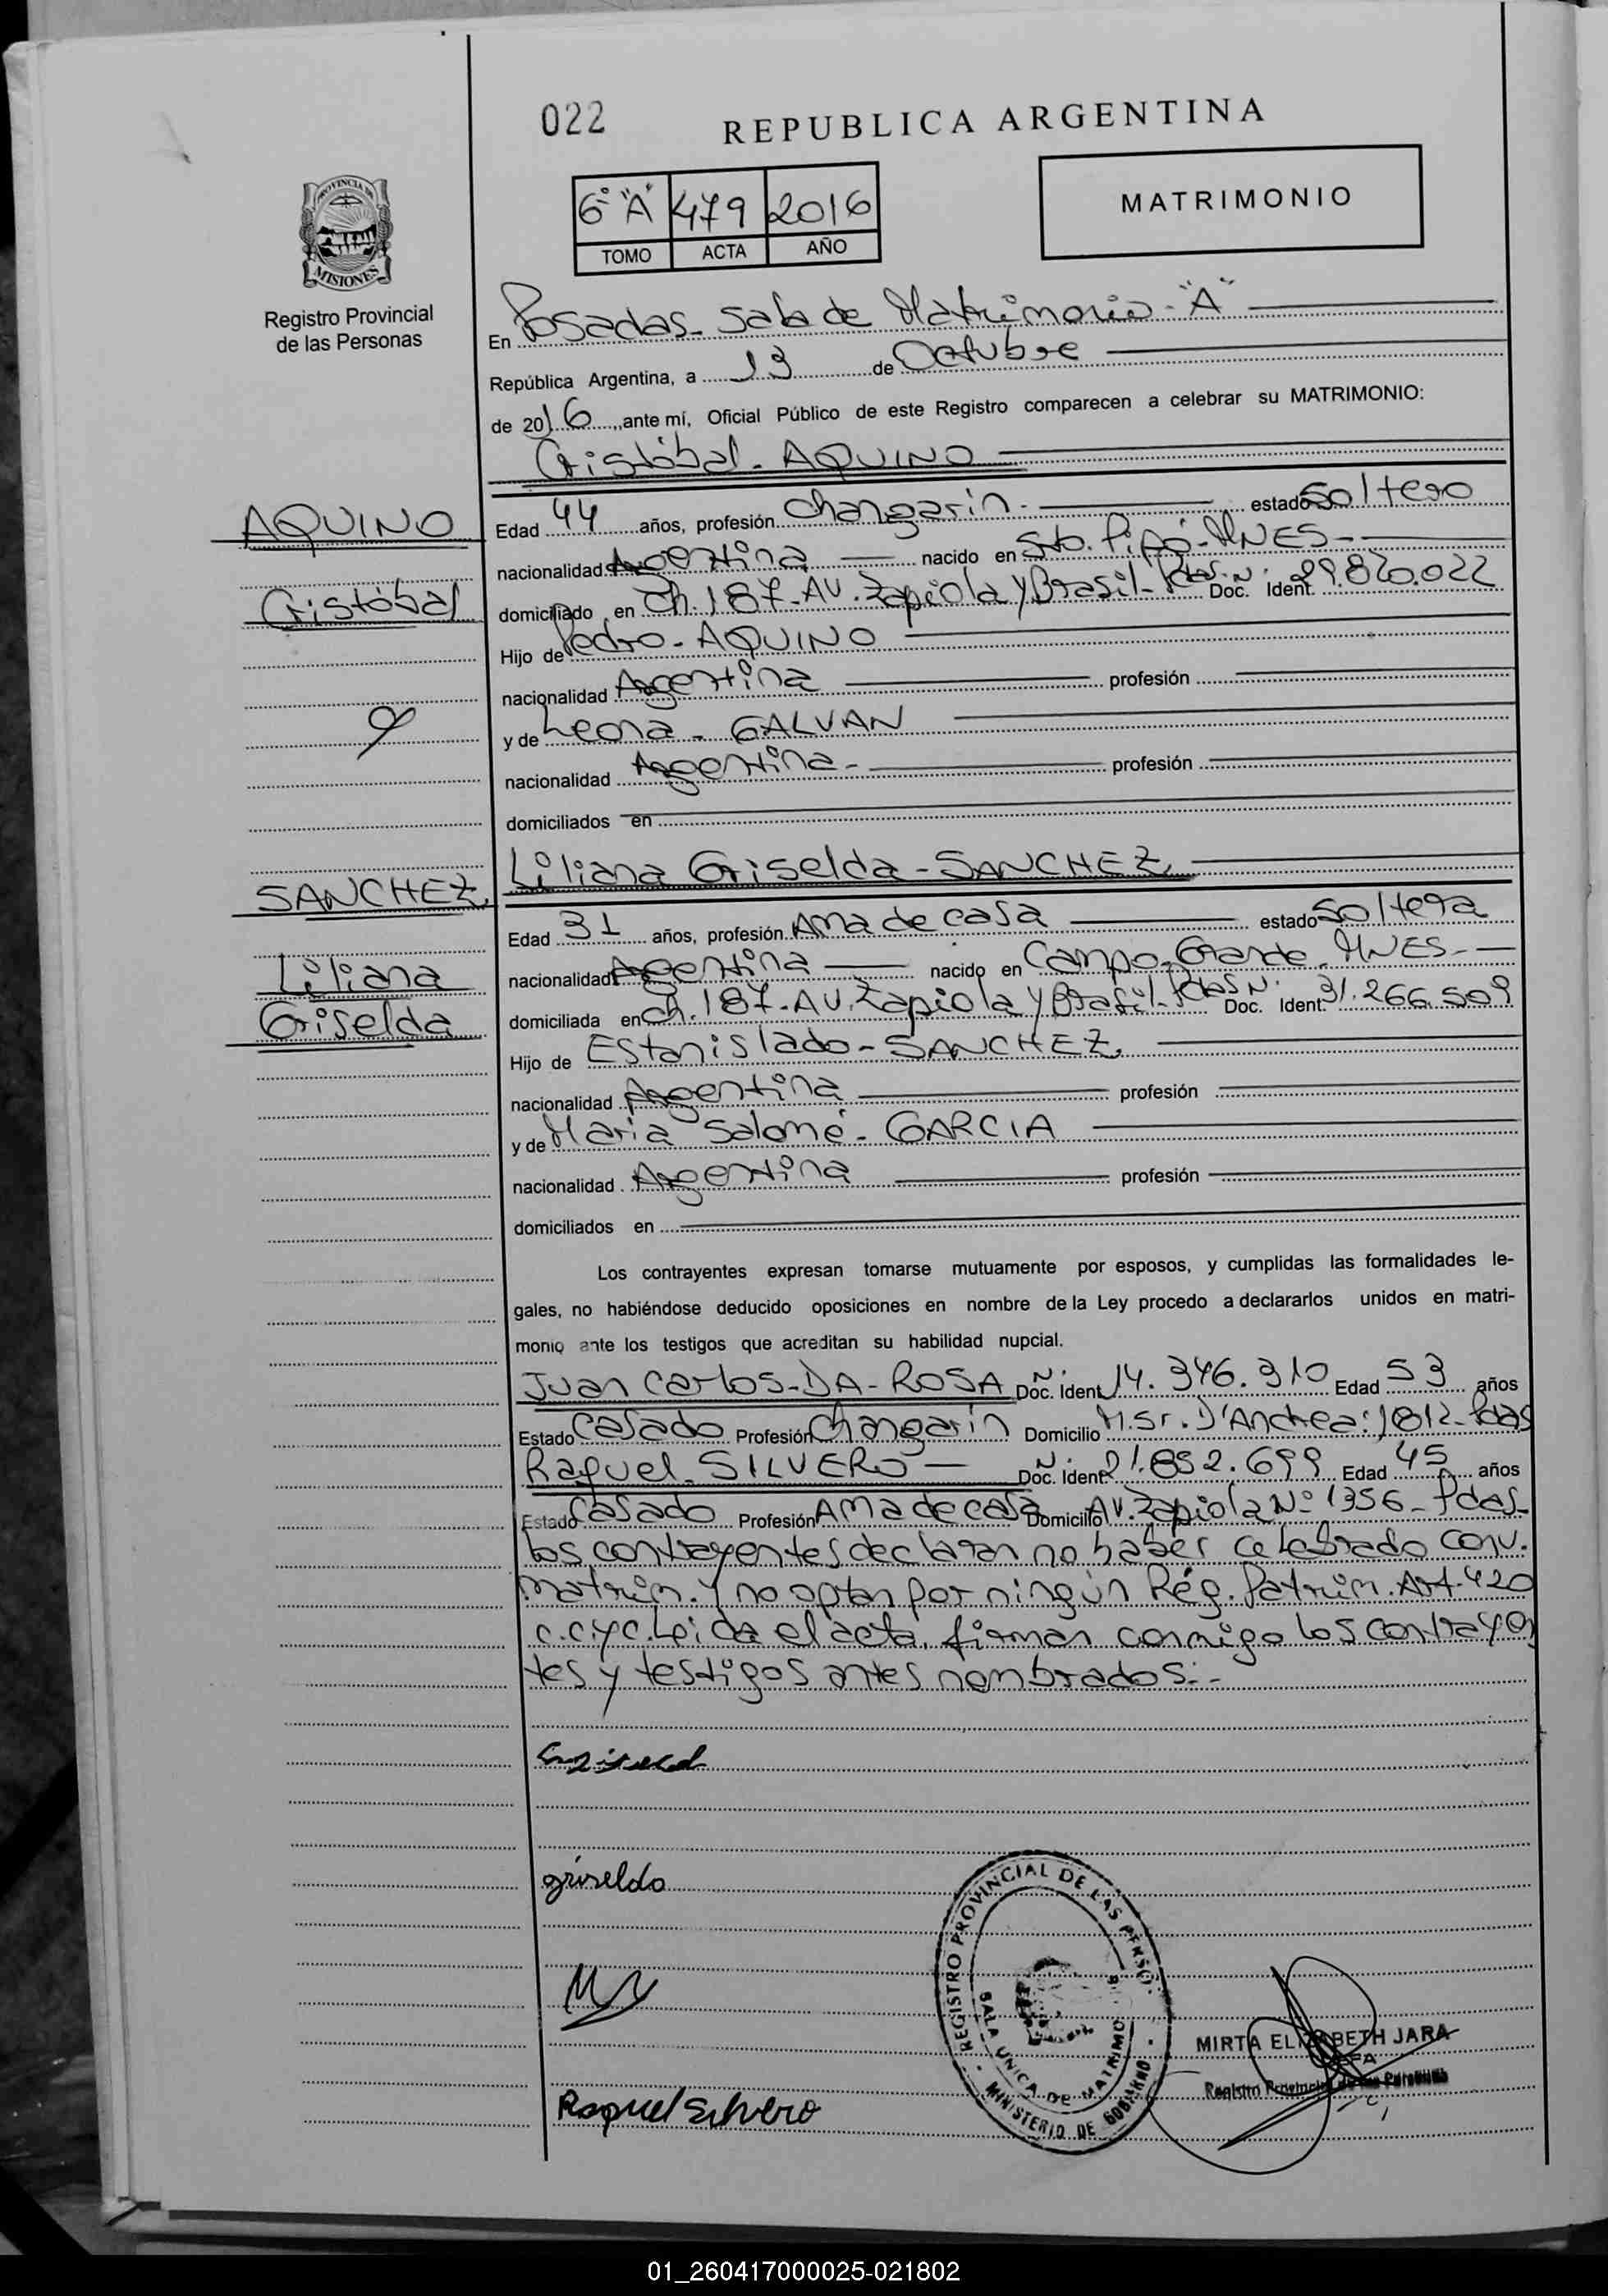 022
REPUBLICA ARGENTINA
PROVINCIA DE
MISIONES
Registro Provincial
de las Personas
6º "A" 479 2016
TOMO ACTA AÑO
MATRIMONIO
En Posadas - Sala de Matrimonio - "A"
República Argentina, a 13 de Octubre
de 2016, ante mí, Oficial Público de este Registro comparecen a celebrar su MATRIMONIO:
Cristóbal - AQUINO
AQUINO
Cristóbal
y
Edad 44 años, profesión Changarín. estado Soltero
nacionalidad Argentina nacido en Sto. Pipó - MNES -
domiciliado en Ch. 187 - AV. Zapiola y Brasil - Pdas. N. Doc. Ident. 29.820.022
Hijo de Pedro - AQUINO
nacionalidad Argentina profesión
y de Leona - GALVAN
nacionalidad Argentina - profesión
domiciliados en
Liliana Griselda - SANCHEZ
SANCHEZ
Liliana
Griselda
Edad 31 años, profesión Ama de casa estado Soltera
nacionalidad Argentina nacido en Campo Grande - MNES -
domiciliada en Ch. 187 - AV. Zapiola y Brasil - Pdas N. Doc. Ident. 31.266.509
Hijo de Estanislado - SANCHEZ
nacionalidad Argentina profesión
y de Maria Salomé - GARCIA
nacionalidad Argentina profesión
domiciliados en
Los contrayentes expresan tomarse mutuamente por esposos, y cumplidas las formalidades le-
gales, no habiéndose deducido oposiciones en nombre de la Ley procedo a declararlos unidos en matri-
monio ante los testigos que acreditan su habilidad nupcial.
Juan Carlos - DA - ROSA N. Doc. Ident 14.346.310 Edad 53 años
Estado Casado Profesión Changarín Domicilio M.Sr. D'Andrea: 1812 - Pdas
Raquel - SILVERO N. Doc. Ident 21.852.699 Edad 45 años
Estado Casado Profesión Ama de casa Domicilio AV. Zapiola Nº 1356 - Pdas -
los contrayentes declaran no haber celebrado conv.
matrim. y no optan por ningún Rég. Patrim. Art. 420
C.C.y C. Leida el acta, firman conmigo los contrayen
tes y testigos antes nombrados. -
griselda
Raquel Silvero
REGISTRO PROVINCIAL DE LAS PERSO.
SALA UNICA DE MATRIMO
MINISTERIO DE GOBIERNO
MIRTA ELIZABETH JARA
Registro Provincial de las Personas
01_260417000025-021802